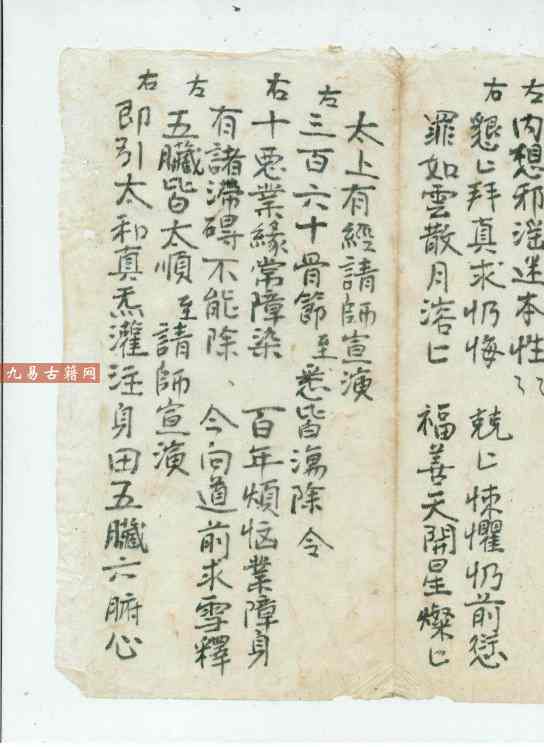 左內想邪滛迷本性〻
右懇〻拜真求仍悔 兢〻悚懼仍前愆
罪如雲散月溶〻 福善天開星燦〻
太上有經請師宣演
左三百六十骨節至悉皆蕩除 令
右十惡業緣常障染 百年煩惱業障身
有諸滯碍不能除、今向道前求雪釋
左五臟皆太順 至請師宣演
右即引太和真炁灌注身田五臟六腑心
九易古籍网